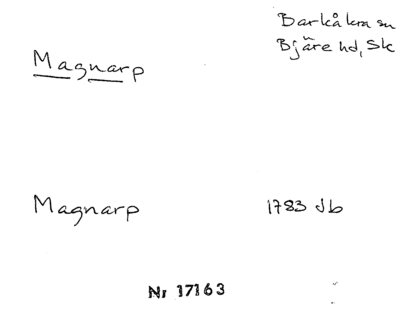 Barkåkra sn
Bjäre hd, Sk
Magnarp
Magnarp 1783 Jb
Nr 17163